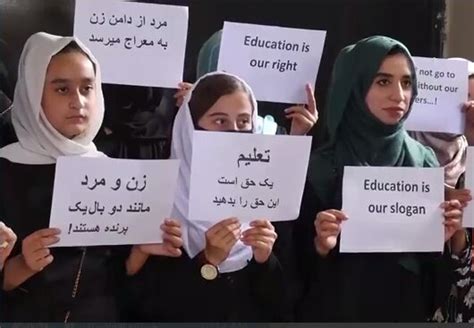 مرد از دامن زن
به معراج میرسد
Education is
our right
not go to
without our
ers...!
زن و مرد
مانند دو بال یک
پرنده هستند!
تعلیم
یک حق است
این حق را بدهید
Education is
our slogan